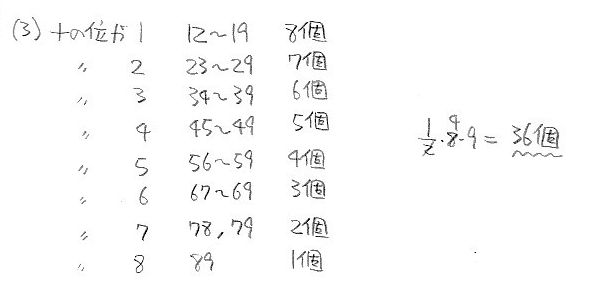 (3) 十の位が 1 12〜19 8個
〃 2 23〜29 7個
〃 3 34〜39 6個
〃 4 45〜49 5個
〃 5 56〜59 4個
〃 6 67〜69 3個
〃 7 78, 79 2個
〃 8 89 1個
1/2・8・9 = 36個
4